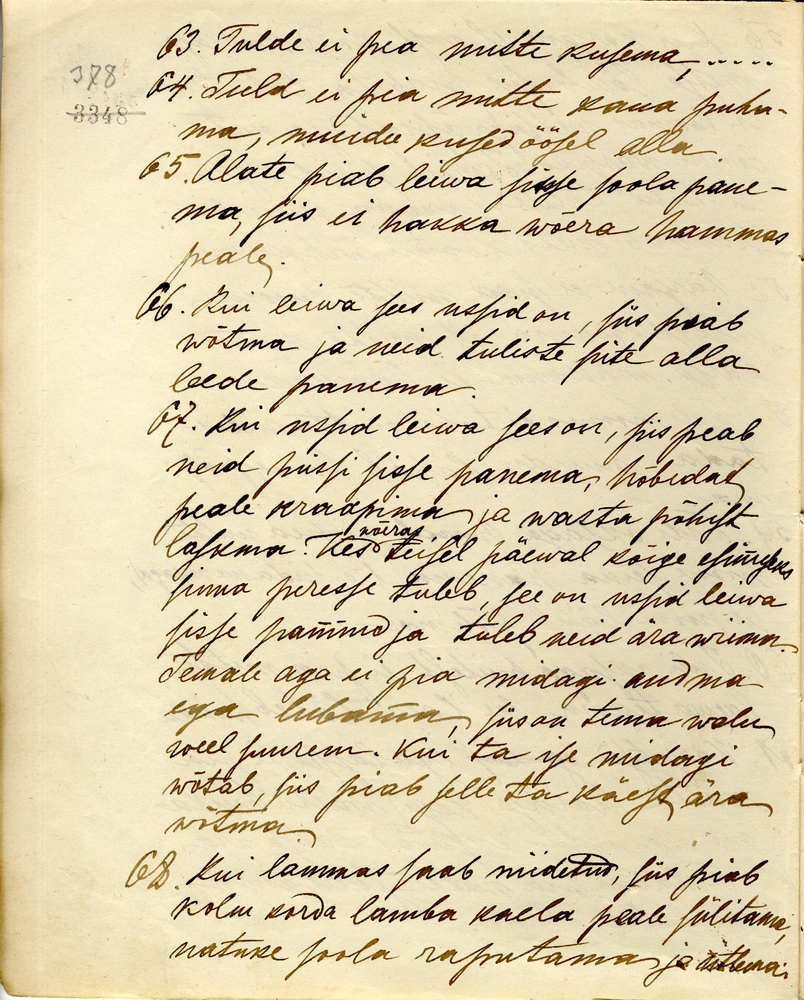 63. Tulde ei pea mitte kusema, .....
378
64. Tuld ei pia mitte kaua puhu-
3348
ma, muidu kused öösel alla
65. Alate piab leiwa sisse soola pane-
ma, siis ei hakka wõera hammas
peale.
66. Kui leiwa sees ussid on, siis piab
wõtma ja neid tuliste site alla
leede panema.
67. Kui ussid leiwa sees on, siis peab
neid püssi sisse panema, hõbedat
peale kraapima ja wasta põhist
laskma. Kes wõeras teisel päewal kõige esimeseks
sinna peresse tuleb, see on ussid leiwa
sisse pannud ja tuleb neid ära wiima.
Temale aga ei pia midagi andma
ega lubama, siis on tema walu
weel suurem. Kui ta ise midagi
wõtab, siis piab selle ta käest ära
wõtma
68. Kui lammas saab niidetud, siis piab
kolm korda lamba kaela peale sülitama,
natuke soola raputama ja ütlema: